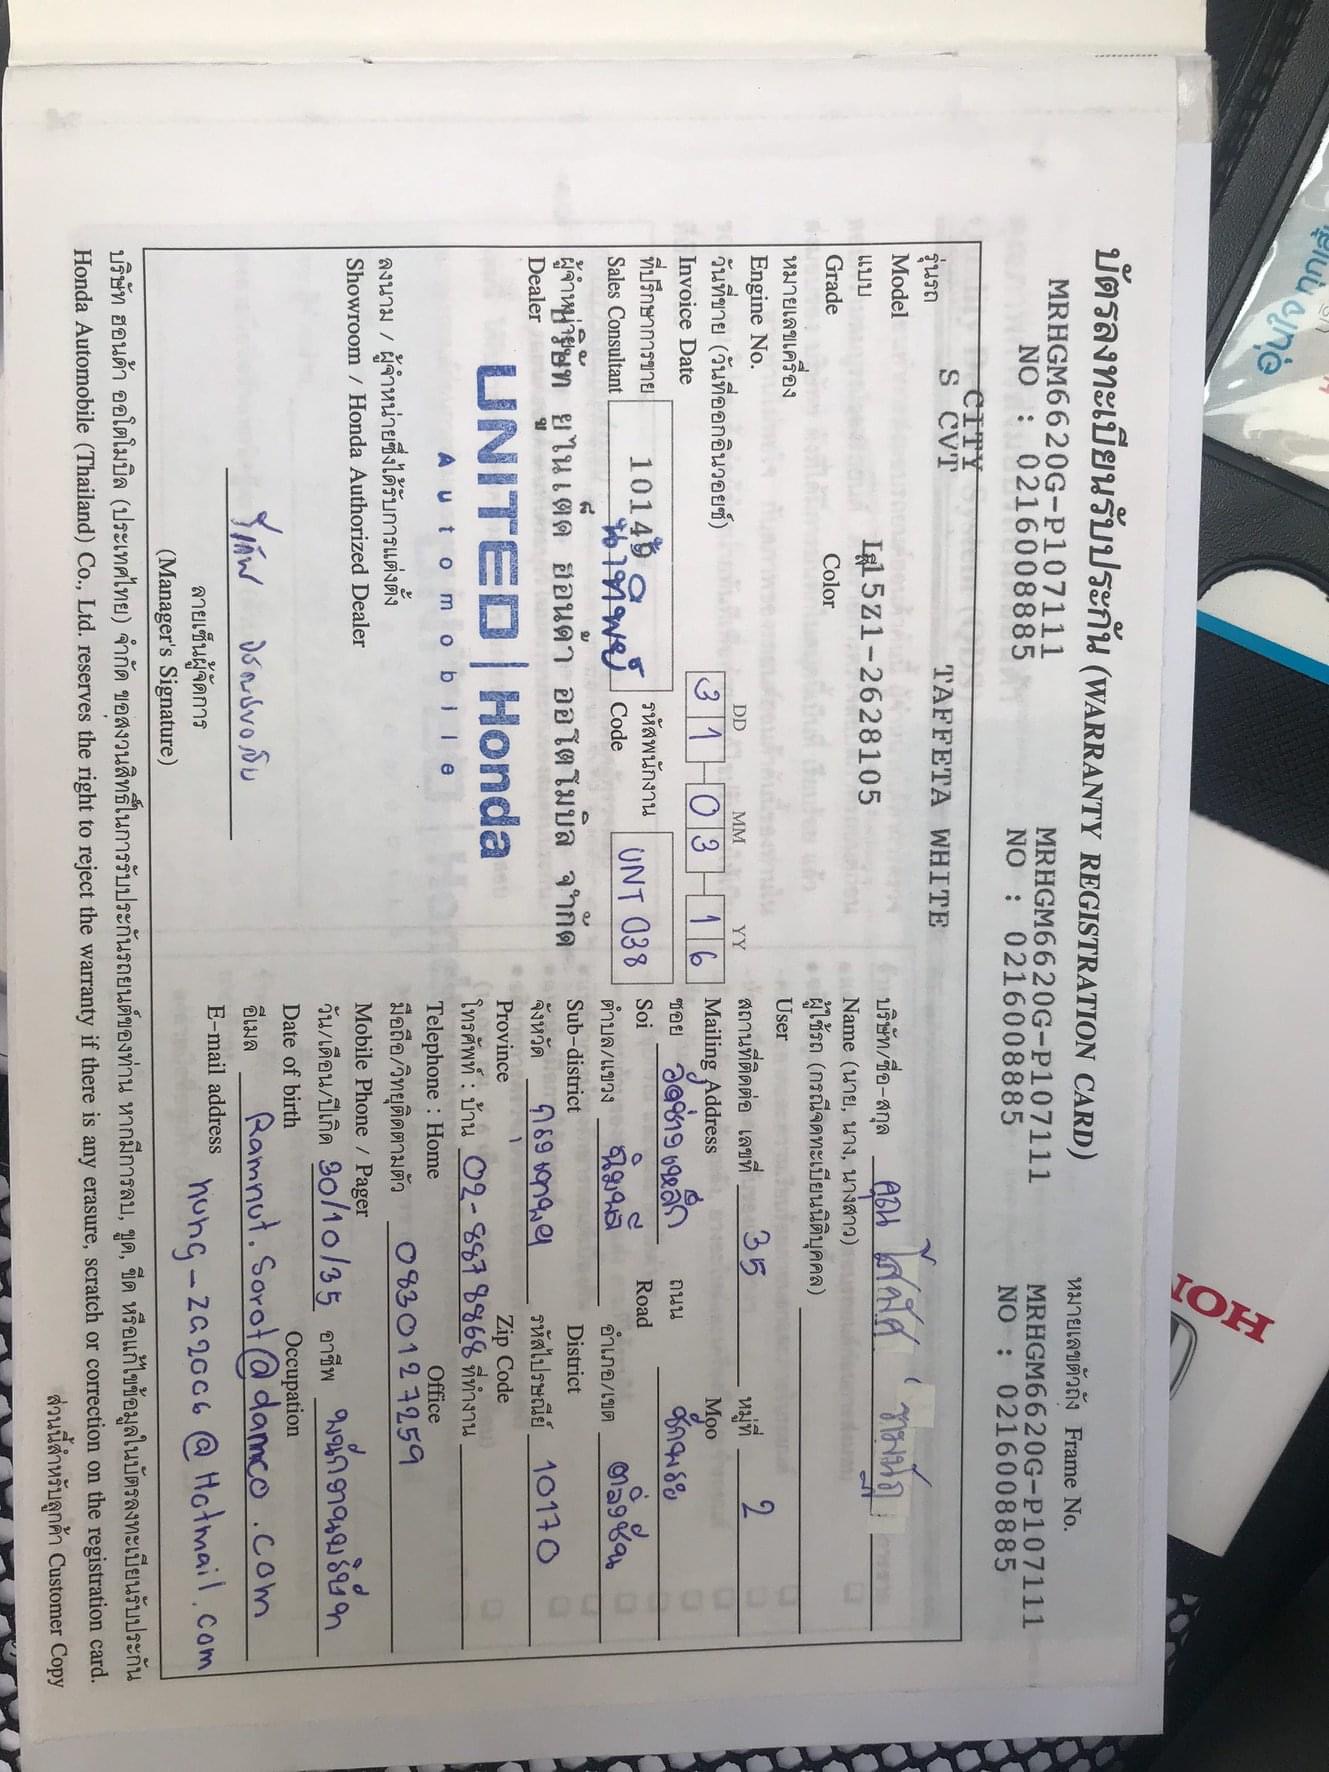 บัตรลงทะเบียนรับประกัน (WARRANTY REGISTRATION CARD)
หมายเลขตัวถัง Frame No.
MRHGM6620G-P107111 MRHGM6620G-P107111 MRHGM6620G-P107111
NO : 0216008885 NO : 0216008885 NO : 0216008885
รุ่นรถ CITY
Model S CVT TAFFETA WHITE
แบบ L15Z1-2628105
Grade สี Color
หมายเลขเครื่อง
Engine No.
DD MM YY
วันที่ขาย (วันที่ออกอินวอยซ์) 31-03-16
Invoice Date
ที่ปรึกษาการขาย รหัสพนักงาน UNT 038
Sales Consultant Code
ผู้จำหน่าย บริษัท ยูไนเต็ด ฮอนด้า ออโตโมบิล จำกัด
Dealer
UNITED | Honda
Automobile
ลงนาม / ผู้จำหน่ายซึ่งได้รับการแต่งตั้ง
Showroom / Honda Authorized Dealer
ลายเซ็นผู้จัดการ
(Manager's Signature)
บริษัท/ชื่อ-สกุล คุณ
Name (นาย, นาง, นางสาว)
ผู้ใช้รถ (กรณีจดทะเบียนนิติบุคคล)
User
สถานที่ติดต่อ เลขที่ 35 หมู่ที่ 2
Mailing Address Moo
ซอย วัดช่างเหล็ก ถนน ชักพระ
Soi Road
ตำบล/แขวง ฉิมพลี อำเภอ/เขต ตลิ่งชัน
Sub-district District
จังหวัด กรุงเทพฯ รหัสไปรษณีย์ 10170
Province Zip Code
โทรศัพท์ : บ้าน 02-8878868 ที่ทำงาน
Telephone : Home Office
มือถือ/วิทยุติดตามตัว 0830127259
Mobile Phone / Pager
วัน/เดือน/ปีเกิด 30/10/35 อาชีพ พนักงานบริษัท
Date of birth Occupation
อีเมล Ramnut.Sorot@damco.com
E-mail address nung-za2006@Hotmail.com
บริษัท ฮอนด้า ออโตโมบิล (ประเทศไทย) จำกัด ขอสงวนสิทธิ์ในการรับประกันรถยนต์ของท่าน หากมีการลบ, ขูด, ขีด หรือแก้ไขข้อมูลในบัตรลงทะเบียนรับประกัน
Honda Automobile (Thailand) Co., Ltd. reserves the right to reject the warranty if there is any erasure, scratch or correction on the registration card.
ส่วนนี้สำหรับลูกค้า Customer Copy